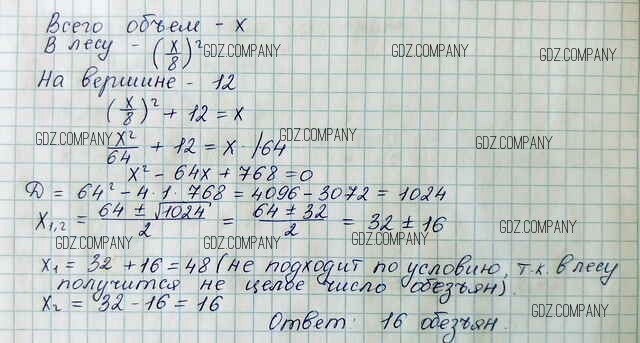 Всего объем - x
В лесу - (x/8)² GDZ.COMPANY GDZ.COMPANY GDZ.COMPANY
На вершине - 12
(x/8)² + 12 = x
GDZ.COMPANY GDZ.COMPANY GDZ.COMPANY
x²/64 + 12 = x · /64
x² - 64x + 768 = 0
D = 64² - 4 · 1 · 768 = 4096 - 3072 = 1024
x₁,₂ = (64 ± √1024)/2 = (64 ± 32)/2 = 32 ± 16
GDZ.COMPANY GDZ.COMPANY GDZ.COMPANY GDZ.COMPANY
x₁ = 32 + 16 = 48 (не подходит по условию, т.к. в лесу
получится не целое число обезьян).
x₂ = 32 - 16 = 16
Ответ: 16 обезьян.
GDZ.COMPANY